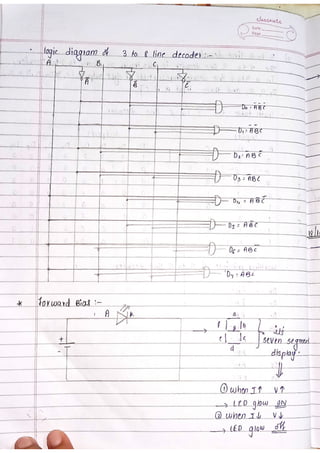 classmate
Date
Page
logic diagram of 3 to 8 line decoder:-
A B C
Ā B̄ C̄
D₀ = ĀB̄C̄
D₁ = ĀB̄C
D₂ = ĀBC̄
D₃ = ĀBC
D₄ = AB̄C̄
D₅ = AB̄C
D₆ = ABC̄
D₇ = ABC
* Forward Bias :-
A K
+
-
a
f g b
e c
d
seven segment
display.
① when I↑ V↑
→ LED glow ON
② when I↓ V↓
→ LED glow off